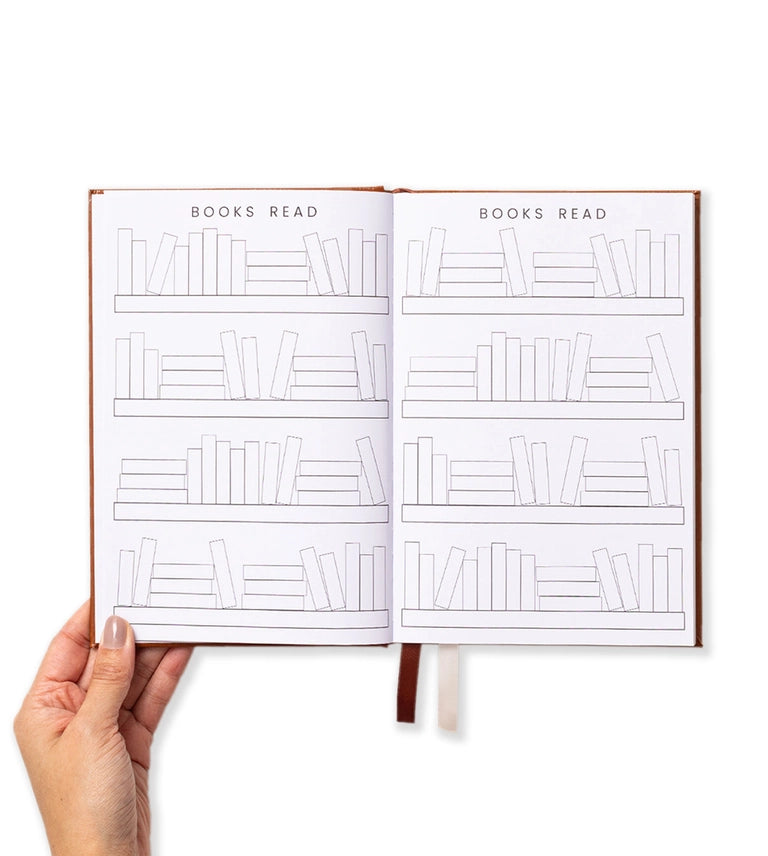 BOOKS READ
BOOKS READ